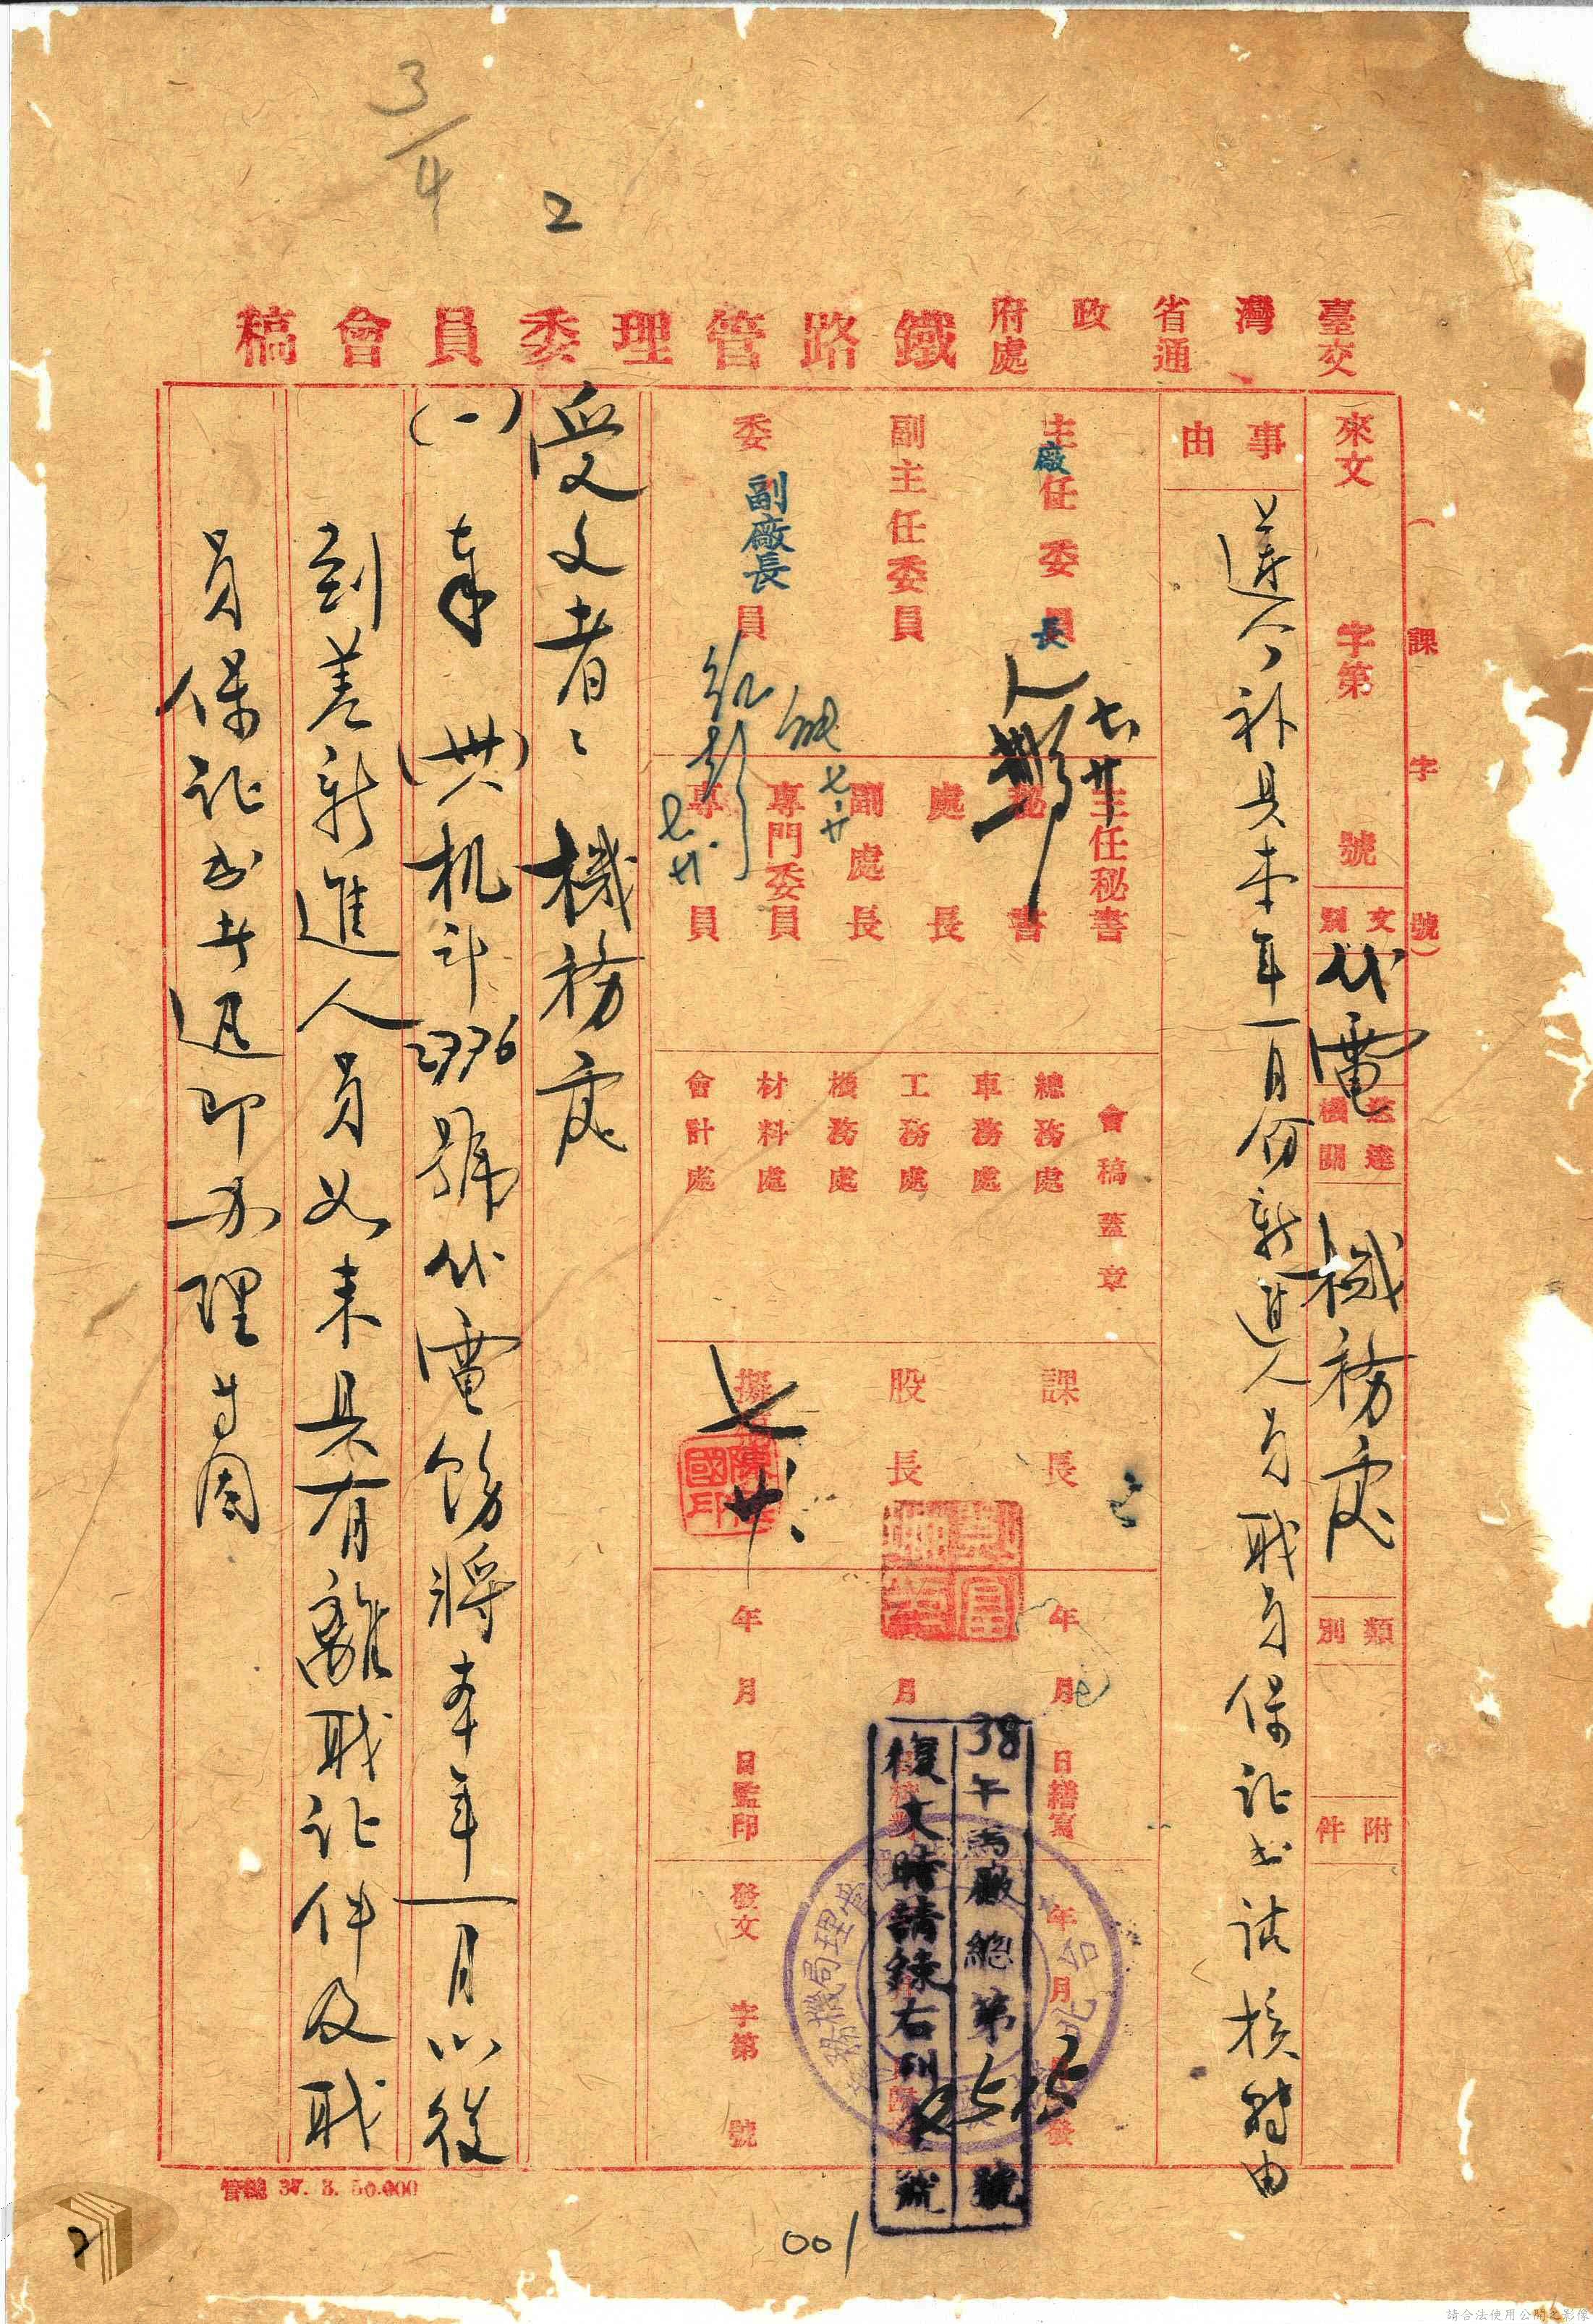 3/4
2
臺灣省政府
交通處
鐵路管理委員會稿
(課字號)
來文 字第 號
文別 代電
送達機關 機務處
類別
附件
事由
遵令補具本年一月份新進人員職員保証書請核轉由
主任委員
廠長
七廿
副主任委員
委員
副廠長
七廿
七廿
主任秘書
秘書
處長
副處長
專門委員
專員
會稿蓋章
總務處
車務處
工務處
機務處
材料處
會計處
課長
股長
擬稿
七廿
年 月 日繕寫
年 月 日校對
年 月 日監印
年 月 發
發文 字第 號
38午 廠總第 號
復文時請錄右列 號
受文者: 機務處
(一) 奉(卅八)机斗2776號代電飭將本年一月以後
到差新進人員如未具有離職証件及職
員保証書者迅即办理等因
管總 37. 3. 50.000
001
2
請合法使用公開之影像